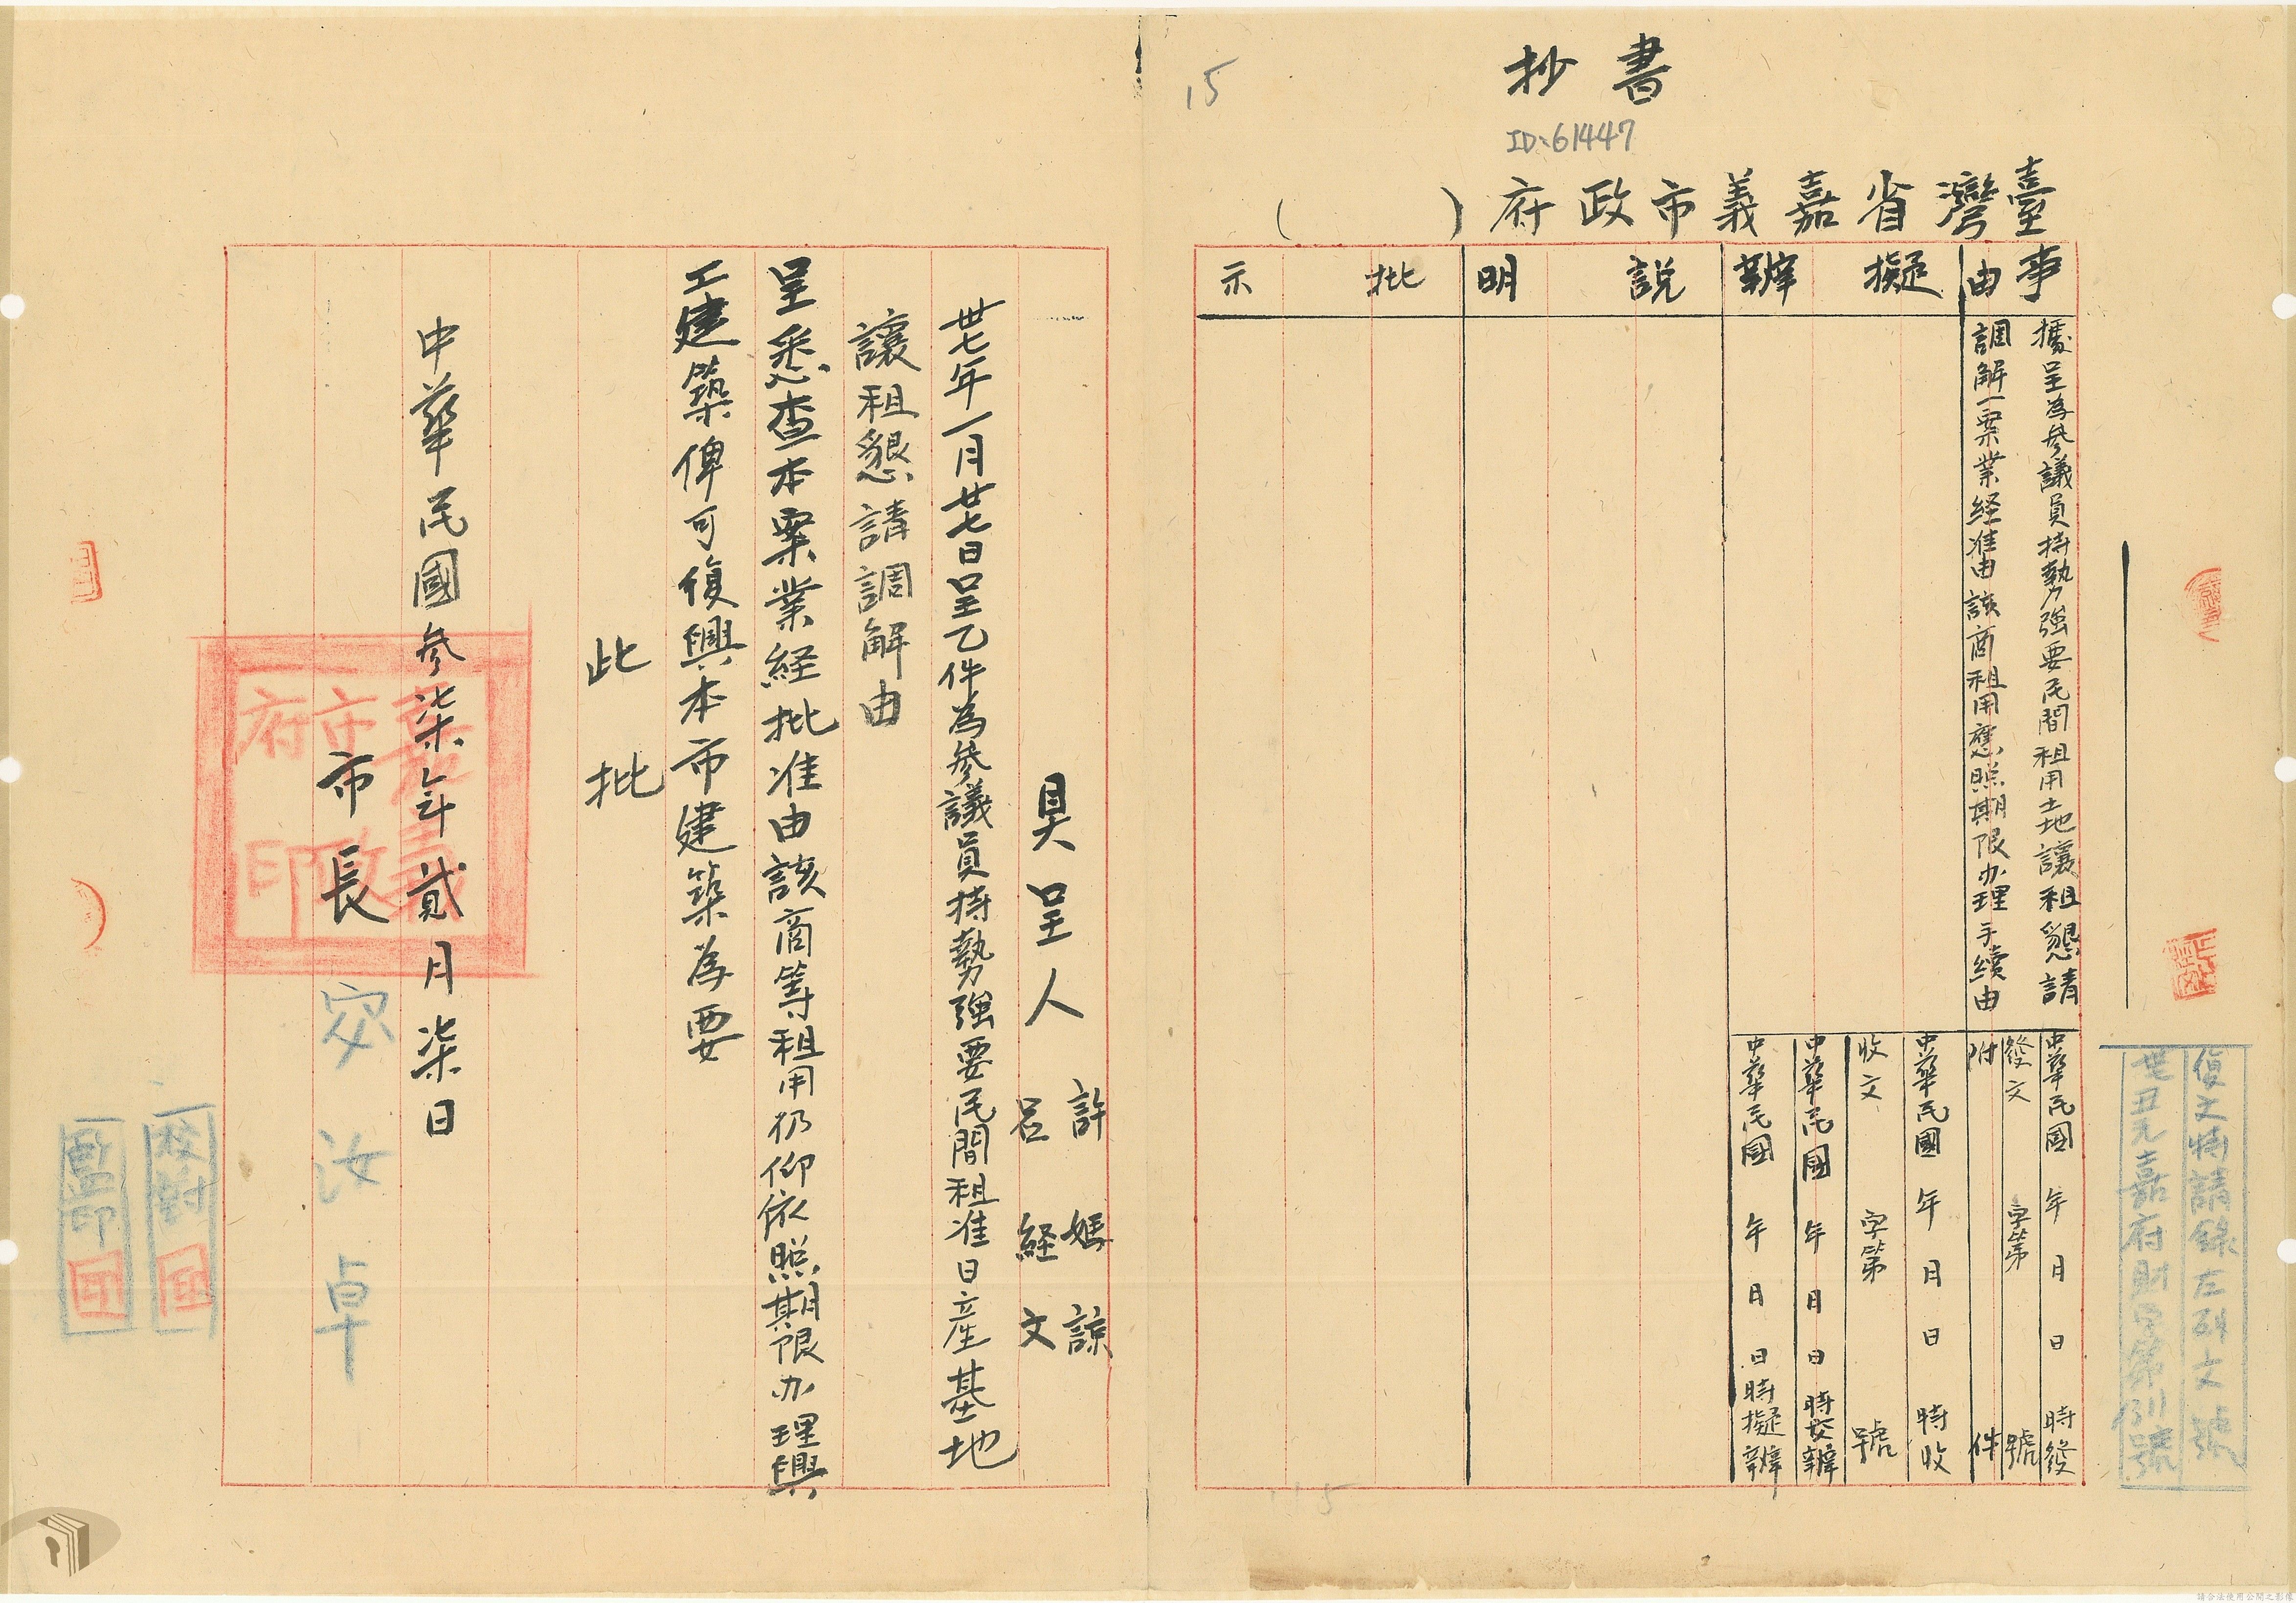 抄書
ID:61447
15
臺灣省嘉義市政府（　　）
事由
擬辦
說明
批示
據呈為參議員持勢強要民間租用土地讓租懇請
調解一案業経准由該商租用應照期限办理手續由
中華民國　年　月　日　時發
發文　字第　號
附　件
中華民國　年　月　日　時收
收文　字第　號
中華民國　年　月　日　時交辦
中華民國　年　月　日　時擬辦
復文時請錄左列文號
嘉府財
具呈人　許媽諒
呂経文
卅七年一月廿七日呈乙件為參議員持勢強要民間租准日產基地
讓租懇請調解由
呈悉查本案業経批准由該商等租用仍仰依照期限办理興
工建築俾可復興本市建築為要
此批
中華民國參柒年貳月柒日
市長　宓汝卓
嘉義市政府印
校對　印
監印　印
請合法使用公開之影像